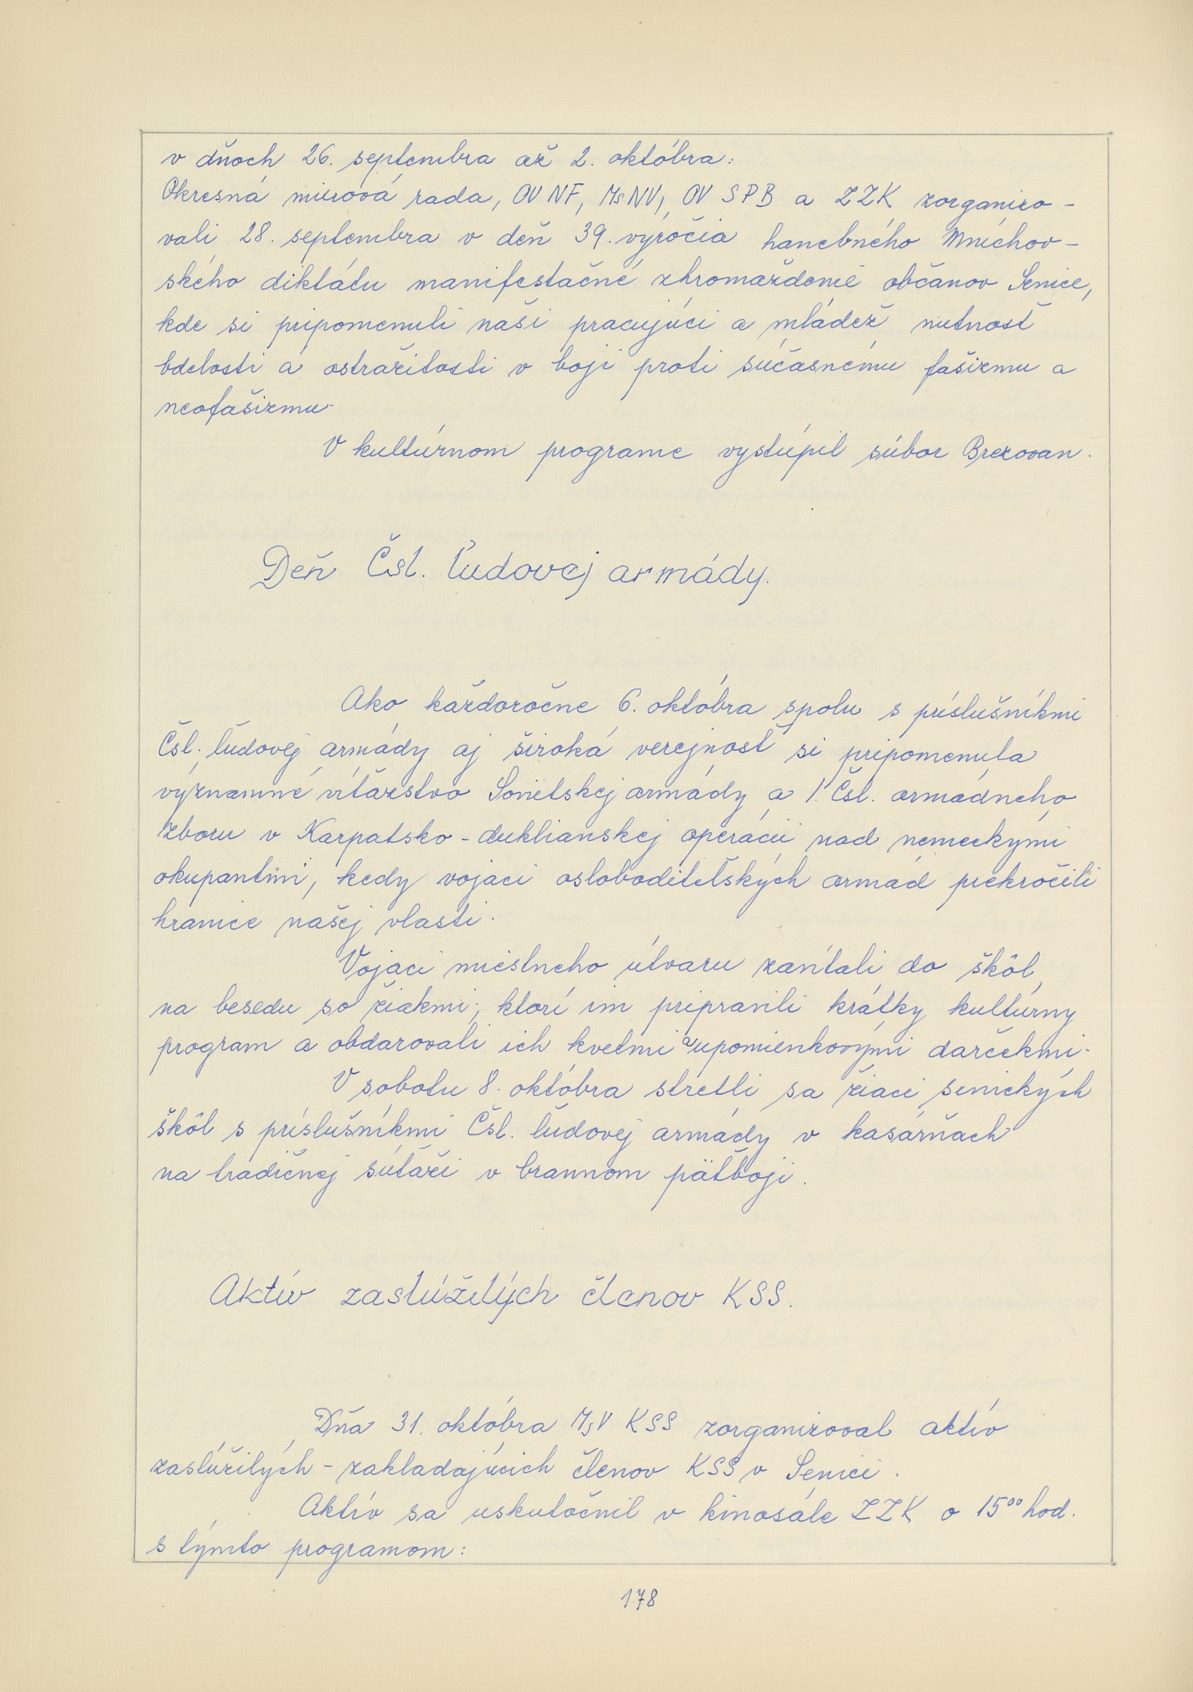 v dňoch 26. septembra až 2. októbra:
Okresná mierová rada, OV NF, MsNV, OV SPB a ZZK zorganizo-
vali 28. septembra v deň 39. výročia hanebného Mníchov-
ského diktátu manifestačné zhromaždenie občanov Senice,
kde si pripomenuli naši pracujúci a mládež nutnosť
bdelosti a ostražitosti v boji proti súčasnému fašizmu a
neofašizmu.
V kultúrnom programe vystúpil súbor Brezovan.
Deň Čsl. ľudovej armády.
Ako každoročne 6. októbra spolu s príslušníkmi
Čsl. ľudovej armády aj široká verejnosť si pripomenula
významné víťazstvo Sovietskej armády a 1. Čsl. armádneho
zboru v Karpatsko-duklianskej operácii nad nemeckými
okupantmi, kedy vojaci osloboditeľských armád prekročili
hranice našej vlasti.
Vojaci miestneho útvaru zavítali do škôl
na besedu so žiakmi, ktorí im pripravili krátky kultúrny
program a obdarovali ich kvetmi a upomienkovými darčekmi.
V sobotu 8. októbra stretli sa žiaci senických
škôl s príslušníkmi Čsl. ľudovej armády v kasárňach
na tradičnej súťaži v brannom päťboji.
Aktív zaslúžilých členov KSS.
Dňa 31. októbra MsV KSS zorganizoval aktív
zaslúžilých - zakladajúcich členov KSS v Senici.
Aktív sa uskutočnil v kinosále ZZK o 15⁰⁰ hod.
s týmto programom:
178